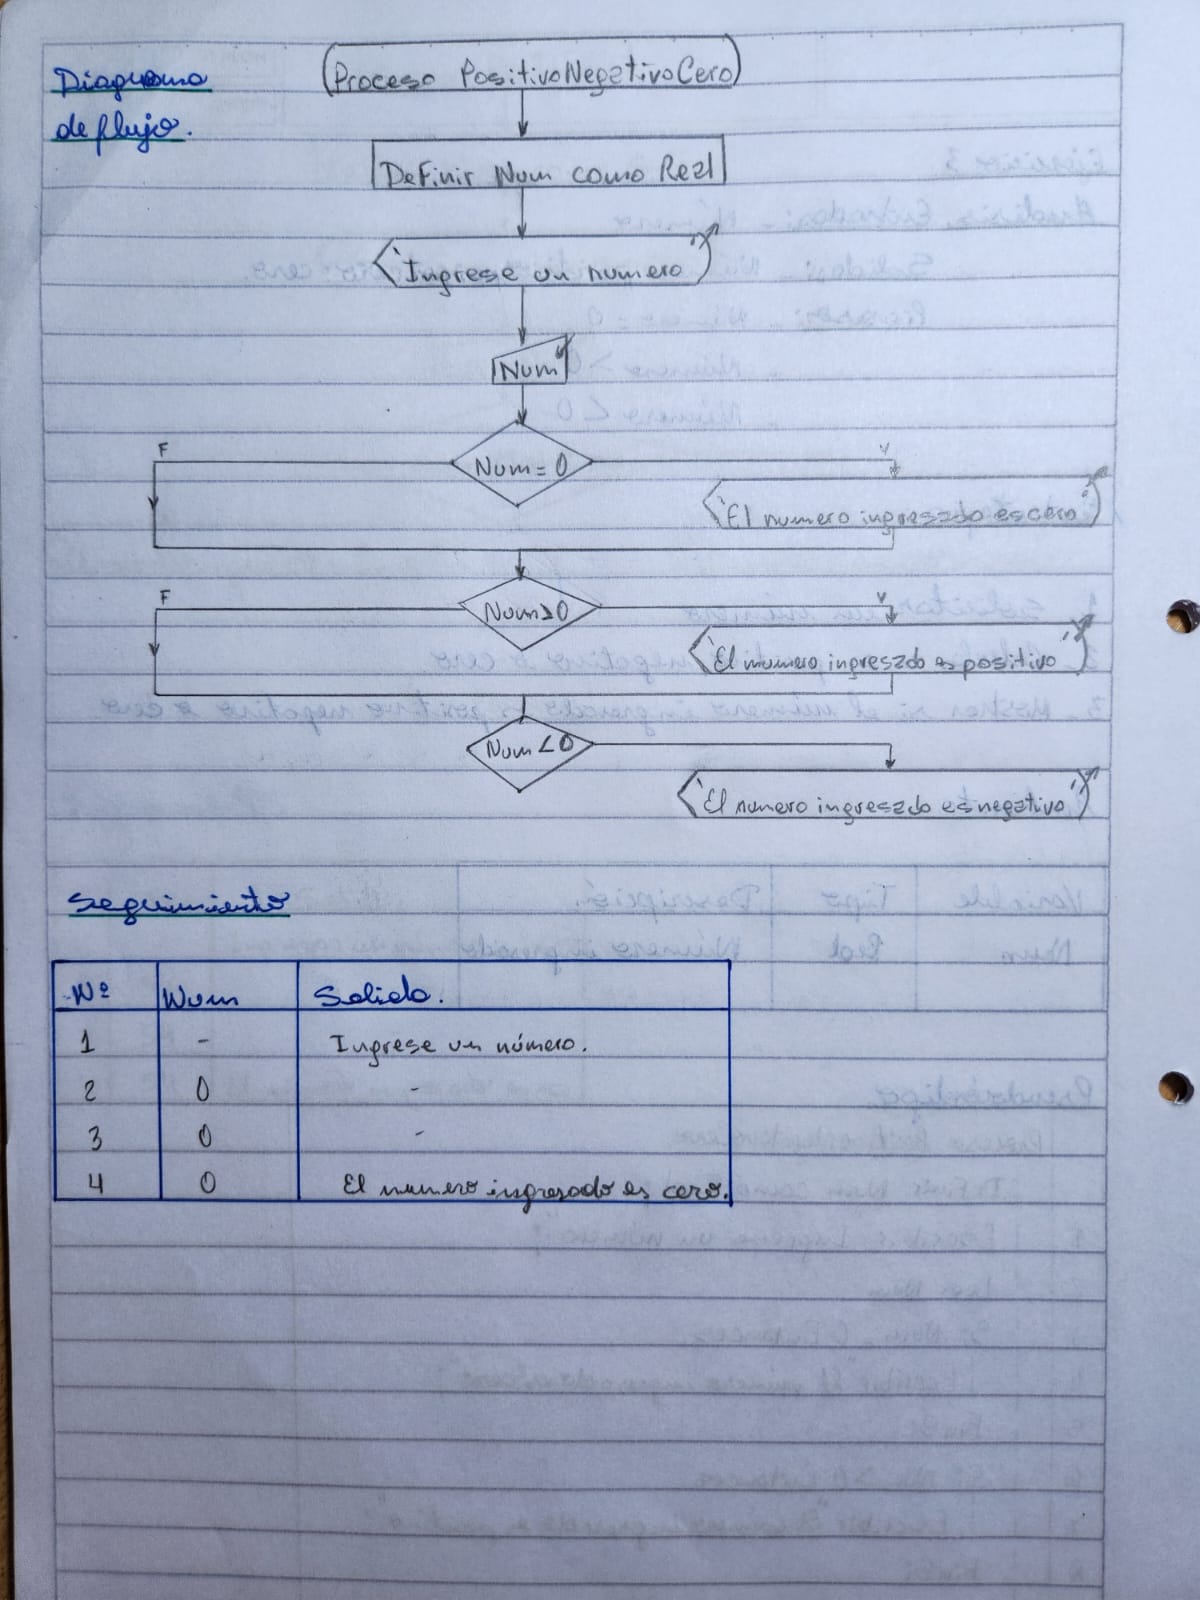 Diagrama
de flujo.
Proceso PositivoNegativoCero
Definir Num como Real
'Ingrese un numero'
Num
Num = 0
F
V
'El numero ingresado es cero'
Num>0
F
V
'El numero ingresado es positivo'
Num<0
'El numero ingresado es negativo'
Seguimiento
Nº Num Salida.
1 - Ingrese un número.
2 0 -
3 0 -
4 0 El numero ingresado es cero.